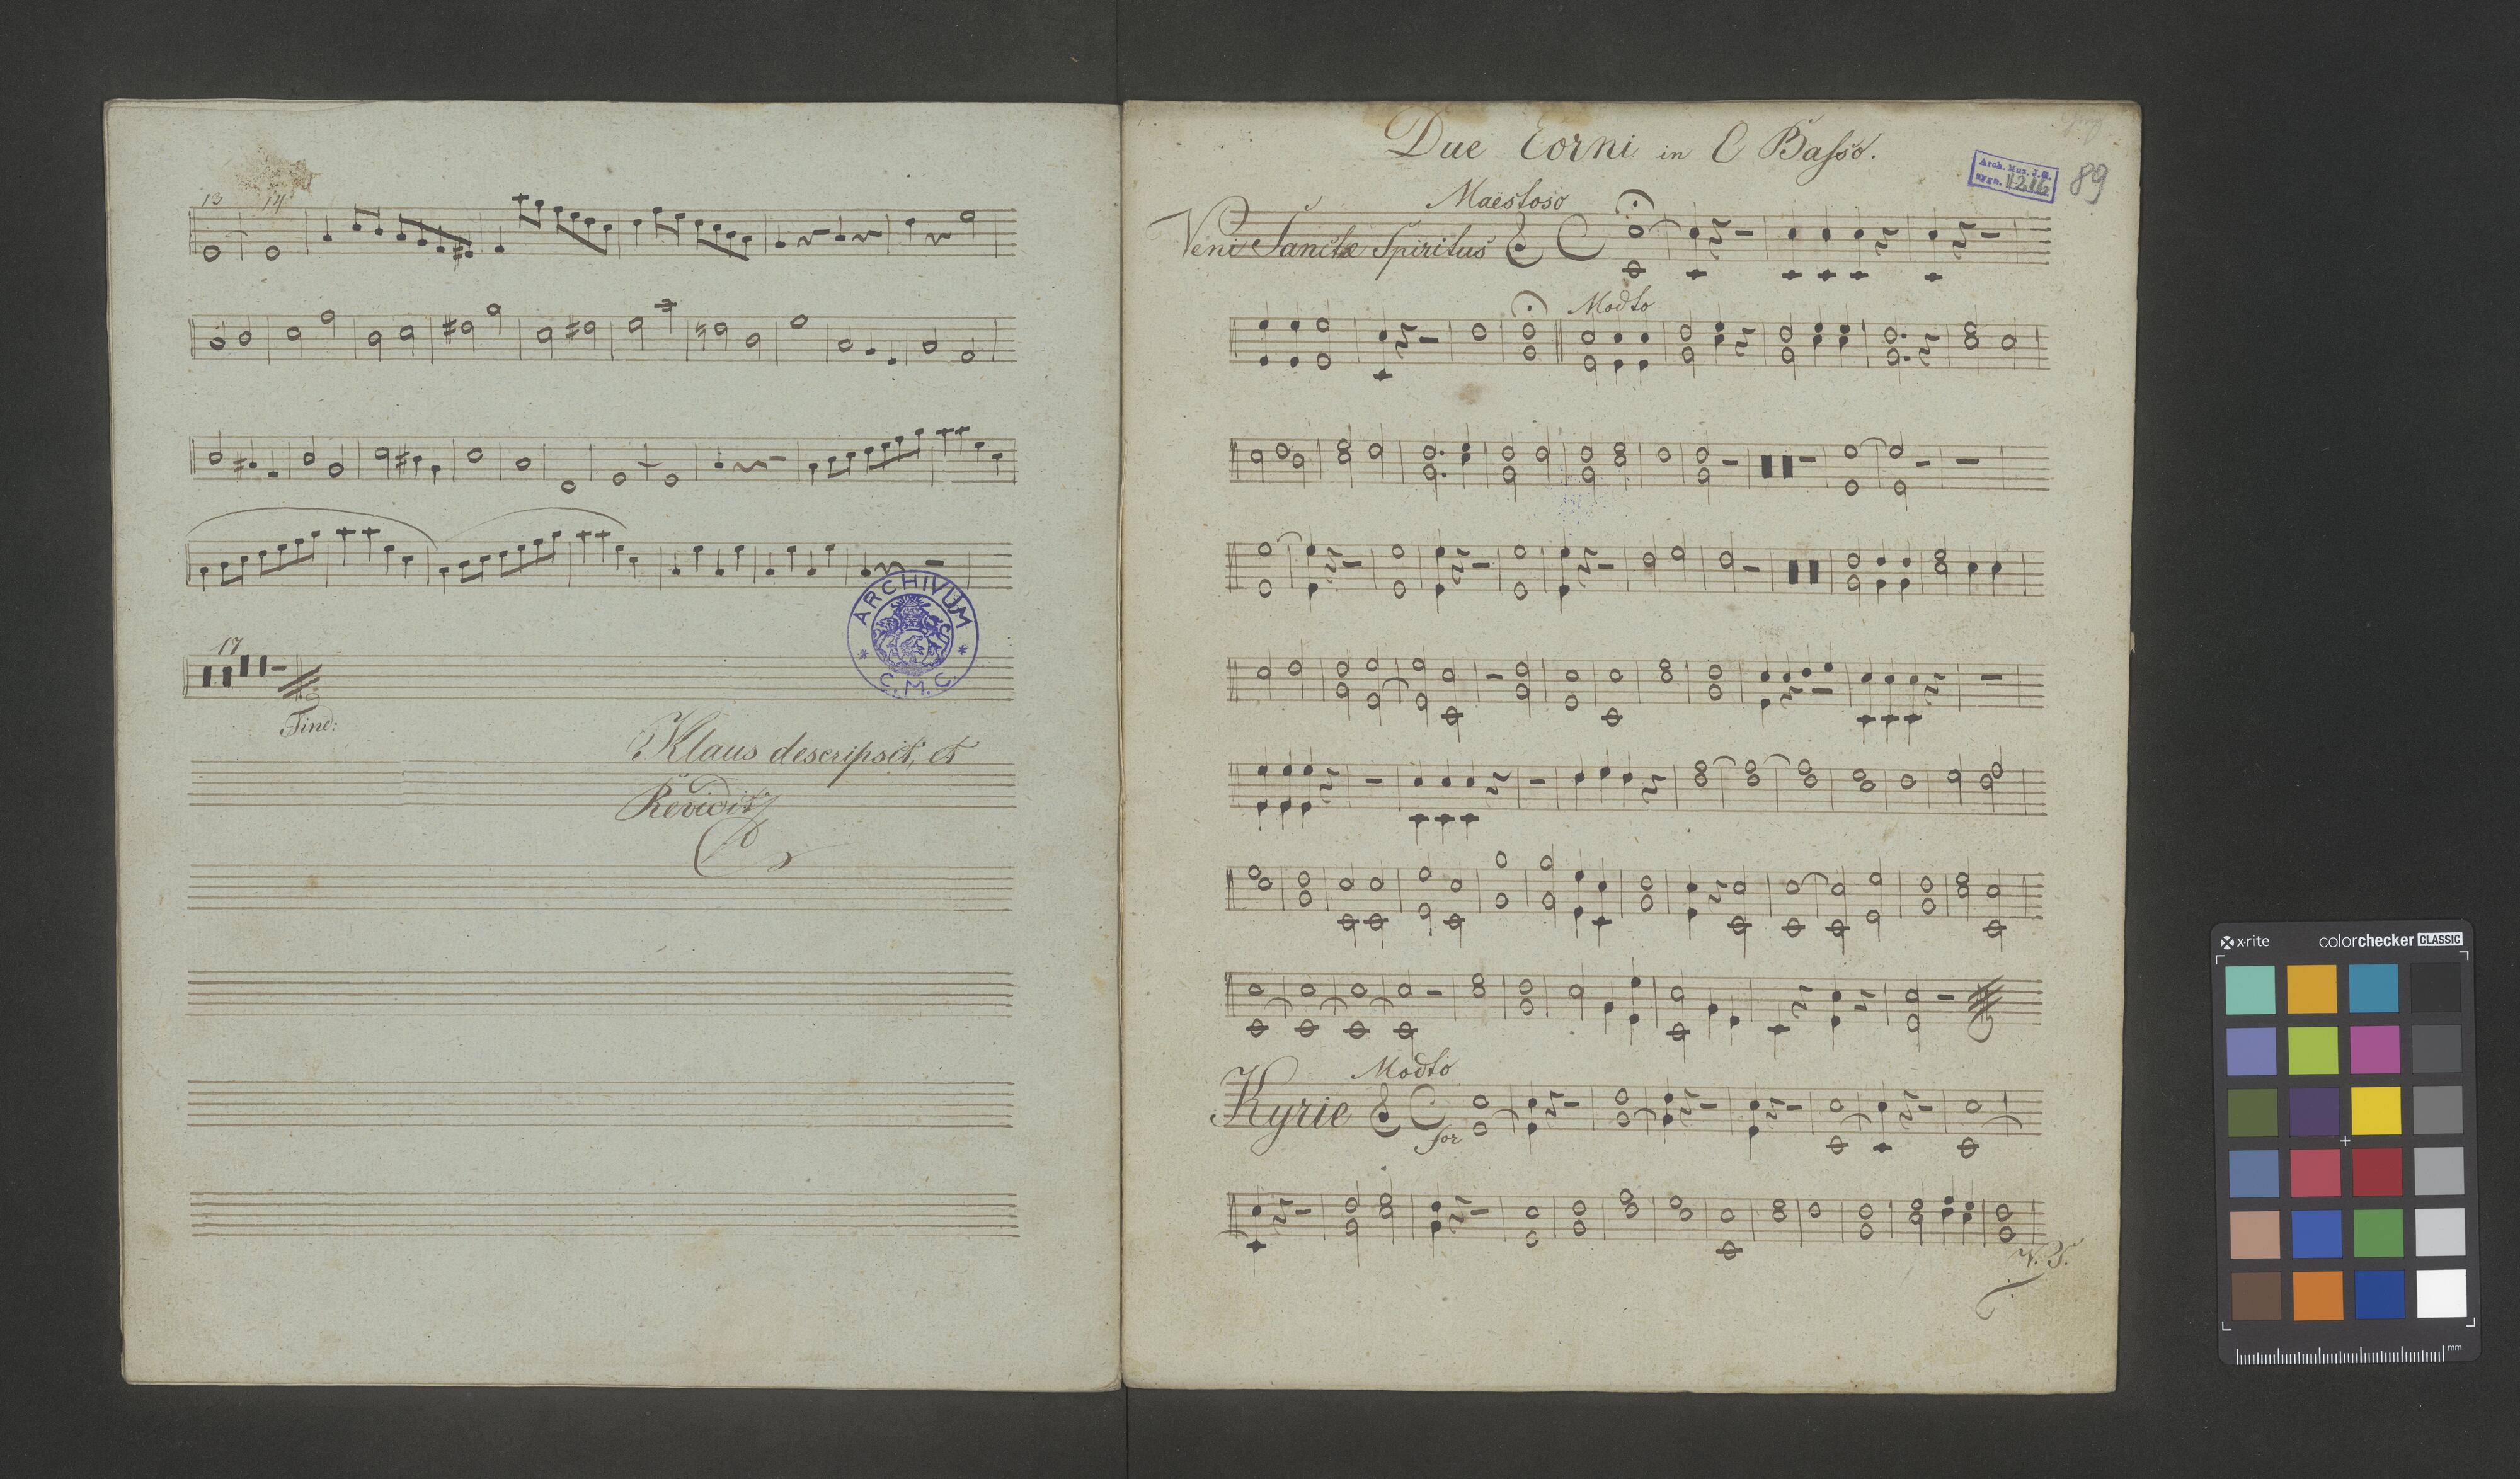 13 14
17
Fine:
Klaus descripsit, et
Revidit
ARCHIVUM
C.M.C.
Due Corni in C Basso.
Arch. Muz. J.G.
sygn.
89
Maestoso
Veni Sancte Spiritus
Modto
Modto
Kyrie
for
V. S.
x-rite colorchecker CLASSIC
mm